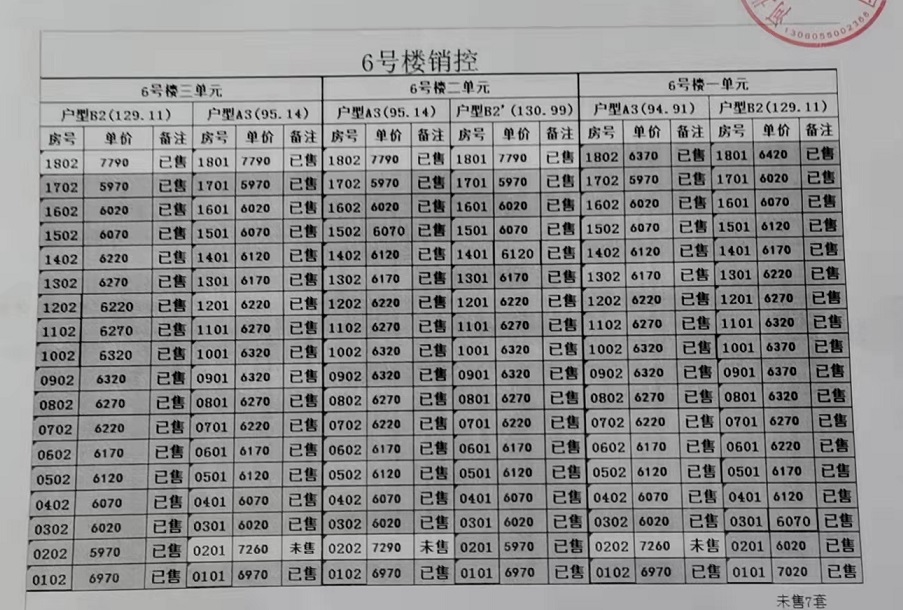 1306055002366
6号楼销控
6号楼三单元 6号楼二单元 6号楼一单元
户型B2(129.11) 户型A3(95.14) 户型A3(95.14) 户型B2'(130.99) 户型A3(94.91) 户型B2(129.11)
房号 单价 备注 房号 单价 备注 房号 单价 备注 房号 单价 备注 房号 单价 备注 房号 单价 备注
1802 7790 已售 1801 7790 已售 1802 7790 已售 1801 7790 已售 1802 6370 已售 1801 6420 已售
1702 5970 已售 1701 5970 已售 1702 5970 已售 1701 5970 已售 1702 5970 已售 1701 6020 已售
1602 6020 已售 1601 6020 已售 1602 6020 已售 1601 6020 已售 1602 6020 已售 1601 6070 已售
1502 6070 已售 1501 6070 已售 1502 6070 已售 1501 6070 已售 1502 6070 已售 1501 6120 已售
1402 6220 已售 1401 6120 已售 1402 6120 已售 1401 6120 已售 1402 6120 已售 1401 6170 已售
1302 6270 已售 1301 6170 已售 1302 6170 已售 1301 6170 已售 1302 6170 已售 1301 6220 已售
1202 6220 已售 1201 6220 已售 1202 6220 已售 1201 6220 已售 1202 6220 已售 1201 6270 已售
1102 6270 已售 1101 6270 已售 1102 6270 已售 1101 6270 已售 1102 6270 已售 1101 6320 已售
1002 6320 已售 1001 6320 已售 1002 6320 已售 1001 6320 已售 1002 6320 已售 1001 6370 已售
0902 6320 已售 0901 6320 已售 0902 6320 已售 0901 6320 已售 0902 6320 已售 0901 6370 已售
0802 6270 已售 0801 6270 已售 0802 6270 已售 0801 6270 已售 0802 6270 已售 0801 6320 已售
0702 6220 已售 0701 6220 已售 0702 6220 已售 0701 6220 已售 0702 6220 已售 0701 6270 已售
0602 6170 已售 0601 6170 已售 0602 6170 已售 0601 6170 已售 0602 6170 已售 0601 6220 已售
0502 6120 已售 0501 6120 已售 0502 6120 已售 0501 6120 已售 0502 6120 已售 0501 6170 已售
0402 6070 已售 0401 6070 已售 0402 6070 已售 0401 6070 已售 0402 6070 已售 0401 6120 已售
0302 6020 已售 0301 6020 已售 0302 6020 已售 0301 6020 已售 0302 6020 已售 0301 6070 已售
0202 5970 已售 0201 7260 未售 0202 7290 未售 0201 5970 已售 0202 7260 未售 0201 6020 已售
0102 6970 已售 0101 6970 已售 0102 6970 已售 0101 6970 已售 0102 6970 已售 0101 7020 已售
未售7套